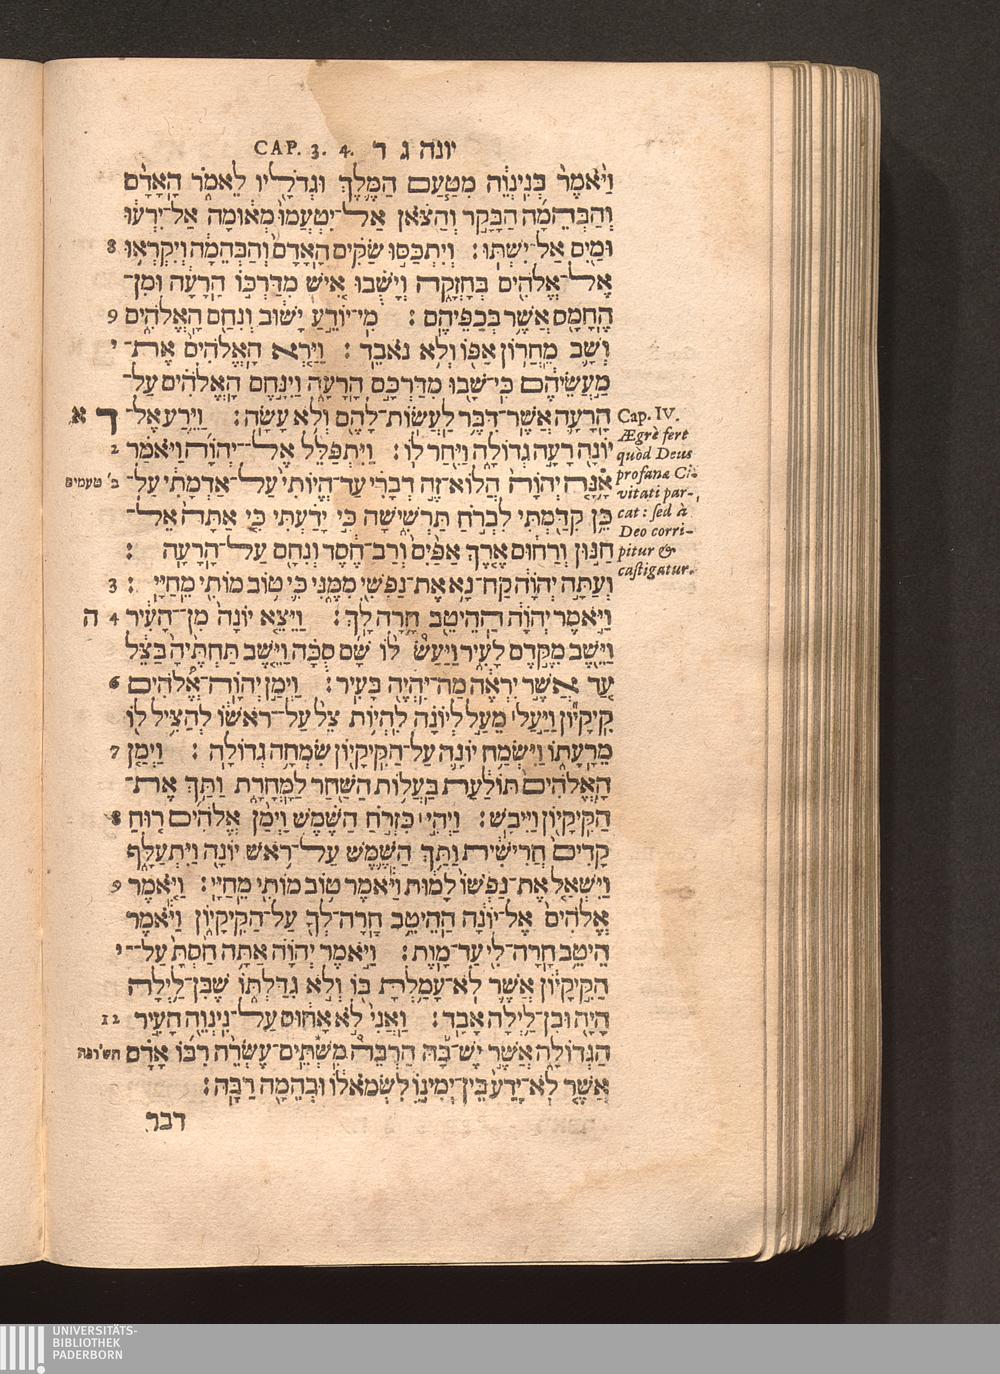 CAP. 3. 4. יונה ג ד
וַיֹּאמֶר בְּנִינְוֵה מִטַּעַם הַמֶּלֶךְ וּגְדֹלָיו לֵאמֹר הָאָדָם
וְהַבְּהֵמָה הַבָּקָר וְהַצֹּאן אַל־יִטְעֲמוּ מְאוּמָה אַל־יִרְעוּ
וּמַיִם אַל־יִשְׁתּוּ: וְיִתְכַּסּוּ שַׂקִּים הָאָדָם וְהַבְּהֵמָה וְיִקְרְאוּ 8
אֶל־אֱלֹהִים בְּחָזְקָה וְיָשֻׁבוּ אִישׁ מִדַּרְכּוֹ הָרָעָה וּמִן־
הֶחָמָס אֲשֶׁר בְּכַפֵּיהֶם: מִי־יוֹדֵעַ יָשׁוּב וְנִחַם הָאֱלֹהִים 9
וְשָׁב מֵחֲרוֹן אַפּוֹ וְלֹא נֹאבֵד: וַיַּרְא הָאֱלֹהִים אֶת־ י
מַעֲשֵׂיהֶם כִּי־שָׁבוּ מִדַּרְכָּם הָרָעָה וַיִּנָּחֶם הָאֱלֹהִים עַל־
הָרָעָה אֲשֶׁר־דִּבֶּר לַעֲשׂוֹת־לָהֶם וְלֹא עָשָׂה: וַיֵּרַע אֶל־ ד א
יוֹנָה רָעָה גְדוֹלָה וַיִּחַר לוֹ: וַיִּתְפַּלֵּל אֶל־יְהוָֹה וַיֹּאמַר 2
אָנָּה יְהוָֹה הֲלוֹא־זֶה דְבָרִי עַד־הֱיוֹתִי עַל־אַדְמָתִי עַל־ ב' טעמים
כֵּן קִדַּמְתִּי לִבְרֹחַ תַּרְשִׁישָׁה כִּי יָדַעְתִּי כִּי אַתָּה אֵל־
חַנּוּן וְרַחוּם אֶרֶךְ אַפַּיִם וְרַב־חֶסֶד וְנִחָם עַל־הָרָעָה:
וְעַתָּה יְהוָֹה קַח־נָא אֶת־נַפְשִׁי מִמֶּנִּי כִּי טוֹב מוֹתִי מֵחַיָּי: 3
וַיֹּאמֶר יְהוָֹה הַהֵיטֵב חָרָה לָךְ: וַיֵּצֵא יוֹנָה מִן־הָעִיר 4 ה
וַיֵּשֶׁב מִקֶּדֶם לָעִיר וַיַּעַשׂ לוֹ שָׁם סֻכָּה וַיֵּשֶׁב תַּחְתֶּיהָ בַּצֵּל
עַד אֲשֶׁר יִרְאֶה מַה־יִּהְיֶה בָּעִיר: וַיְמַן יְהוָֹה־אֱלֹהִים 6
קִיקָיוֹן וַיַּעַל מֵעַל לְיוֹנָה לִהְיוֹת צֵל עַל־רֹאשׁוֹ לְהַצִּיל לוֹ
מֵרָעָתוֹ וַיִּשְׂמַח יוֹנָה עַל־הַקִּיקָיוֹן שִׂמְחָה גְדוֹלָה: וַיְמַן 7
הָאֱלֹהִים תּוֹלַעַת בַּעֲלוֹת הַשַּׁחַר לַמָּחֳרָת וַתַּךְ אֶת־
הַקִּיקָיוֹן וַיִּיבָשׁ: וַיְהִי כִּזְרֹחַ הַשֶּׁמֶשׁ וַיְמַן אֱלֹהִים רוּחַ 8
קָדִים חֲרִישִׁית וַתַּךְ הַשֶּׁמֶשׁ עַל־רֹאשׁ יוֹנָה וַיִּתְעַלָּף
וַיִּשְׁאַל אֶת־נַפְשׁוֹ לָמוּת וַיֹּאמֶר טוֹב מוֹתִי מֵחַיָּי: וַיֹּאמֶר 9
אֱלֹהִים אֶל־יוֹנָה הַהֵיטֵב חָרָה־לְךָ עַל־הַקִּיקָיוֹן וַיֹּאמֶר
הֵיטֵב חָרָה־לִי עַד־מָוֶת: וַיֹּאמֶר יְהוָֹה אַתָּה חַסְתָּ עַל־ י
הַקִּיקָיוֹן אֲשֶׁר לֹא־עָמַלְתָּ בּוֹ וְלֹא גִדַּלְתּוֹ שֶׁבִּן־לַיְלָה
הָיָה וּבִן־לַיְלָה אָבָד: וַאֲנִי לֹא אָחוּס עַל־נִינְוֵה הָעִיר 12
הַגְּדוֹלָה אֲשֶׁר יֶשׁ־בָּהּ הַרְבֵּה מִשְׁתֵּים־עֶשְׂרֵה רִבּוֹ אָדָם
אֲשֶׁר לֹא־יָדַע בֵּין־יְמִינוֹ לִשְׂמֹאלוֹ וּבְהֵמָה רַבָּה:
דבר
Cap. IV.
Ægrè fert
quòd Deus
profanæ Ci-
vitati par-
cat: sed à
Deo corri-
pitur &
castigatur.
UNIVERSITÄTS-
BIBLIOTHEK
PADERBORN